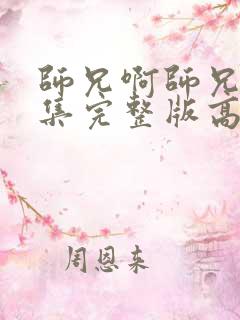 師兄啊師兄
集完整版高
周恩来